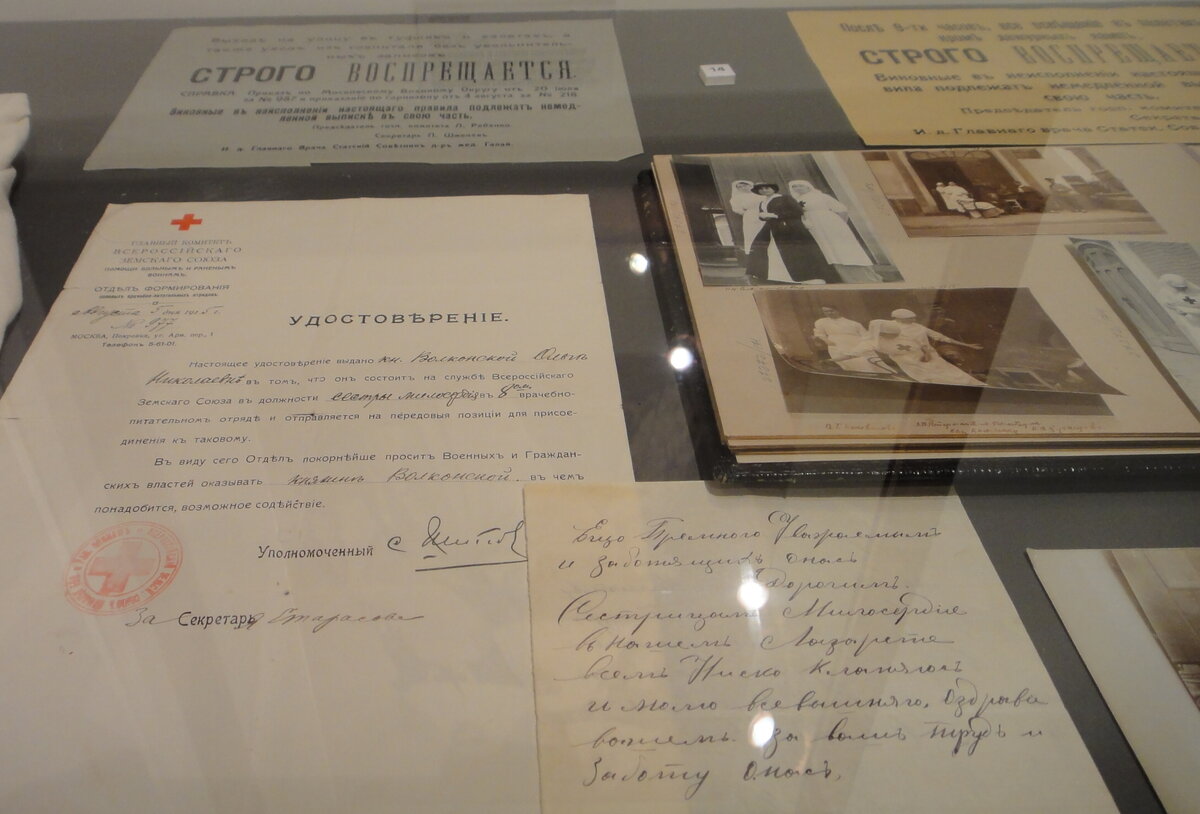 Выходъ на улицу въ туфляхъ и халатахъ, а
также уходъ изъ госпиталя безъ увольнитель-
ныхъ записокъ
СТРОГО ВОСПРЕЩАЕТСЯ.
СПРАВКА: Приказъ по Московскому Военному Округу отъ 20 Іюля
за № 987 и приказаніе по Гарнизону отъ 4 августа за № 216
Виновные въ неисполненіи настоящаго правила подлежатъ немед-
ленной выпискѣ въ свою часть.
Секретарь П.
И. д. Главнаго Врача Статскій Совѣтникъ д-ръ мед.
14
Послѣ 9-ти часовъ все освѣщеніе въ
кромѣ
СТРОГО ВОСПРЕЩАЕТ
Виновные въ неисполненіи настоя
вила подлежатъ немедленной в
свою часть.
Предсѣдатель
Секрета
И. д. Главнаго врача Статск. Сов
ГЛАВНЫЙ КОМИТЕТЪ
ВСЕРОССІЙСКАГО
ЗЕМСКАГО СОЮЗА
ПОМОЩИ БОЛЬНЫМЪ И РАНЕНЫМЪ
ВОИНАМЪ.
ОТДѢЛЪ ФОРМИРОВАНІЯ
августа 5 дня 1915 г.
№ 977
МОСКВА, Покровка, уг. Арм. пер., 1
Телефонъ 5-61-01.
УДОСТОВѢРЕНІЕ.
Настоящее удостовѣреніе выдано кн. Волконской Ольгѣ
Николаевнѣ въ томъ, что онъ состоитъ на службѣ Всероссійскаго
Земскаго Союза въ должности сестры милосердія въ 8омъ врачебно-
питательномъ отрядѣ и отправляется на передовыя позиціи для присое-
диненія къ таковому.
Въ виду сего Отдѣлъ покорнѣйше проситъ Военныхъ и Граждан-
скихъ властей оказывать княжнѣ Волконской, въ чемъ
понадобится, возможное содѣйствіе.
Уполномоченный
За Секретарь
Премного Уважаемымъ
и заботящихъ онасъ
Дорогимъ.
Сестрицамъ Милосердія
в нашемъ Лазарете
всемъ Ниско кланяюсь
и молю всевышняго. Оздравіи
вашемъ за вашъ трудъ и
Заботу онасъ.